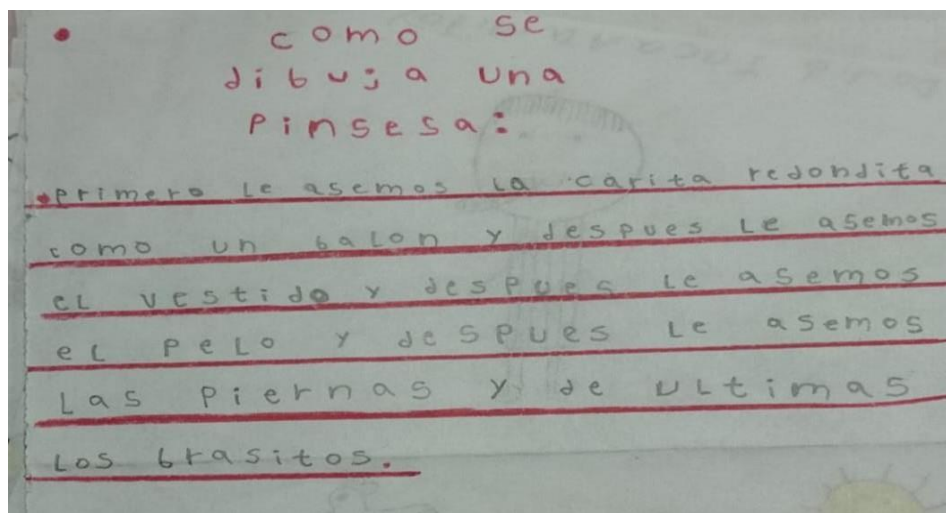 • como se
dibuja una
pinsesa:
•primero Le asemos La carita redondita
como un balon y despues Le asemos
eL vestido y despues Le asemos
eL peLo y despues Le asemos
Las piernas y de ULtimas
Los brasitos.